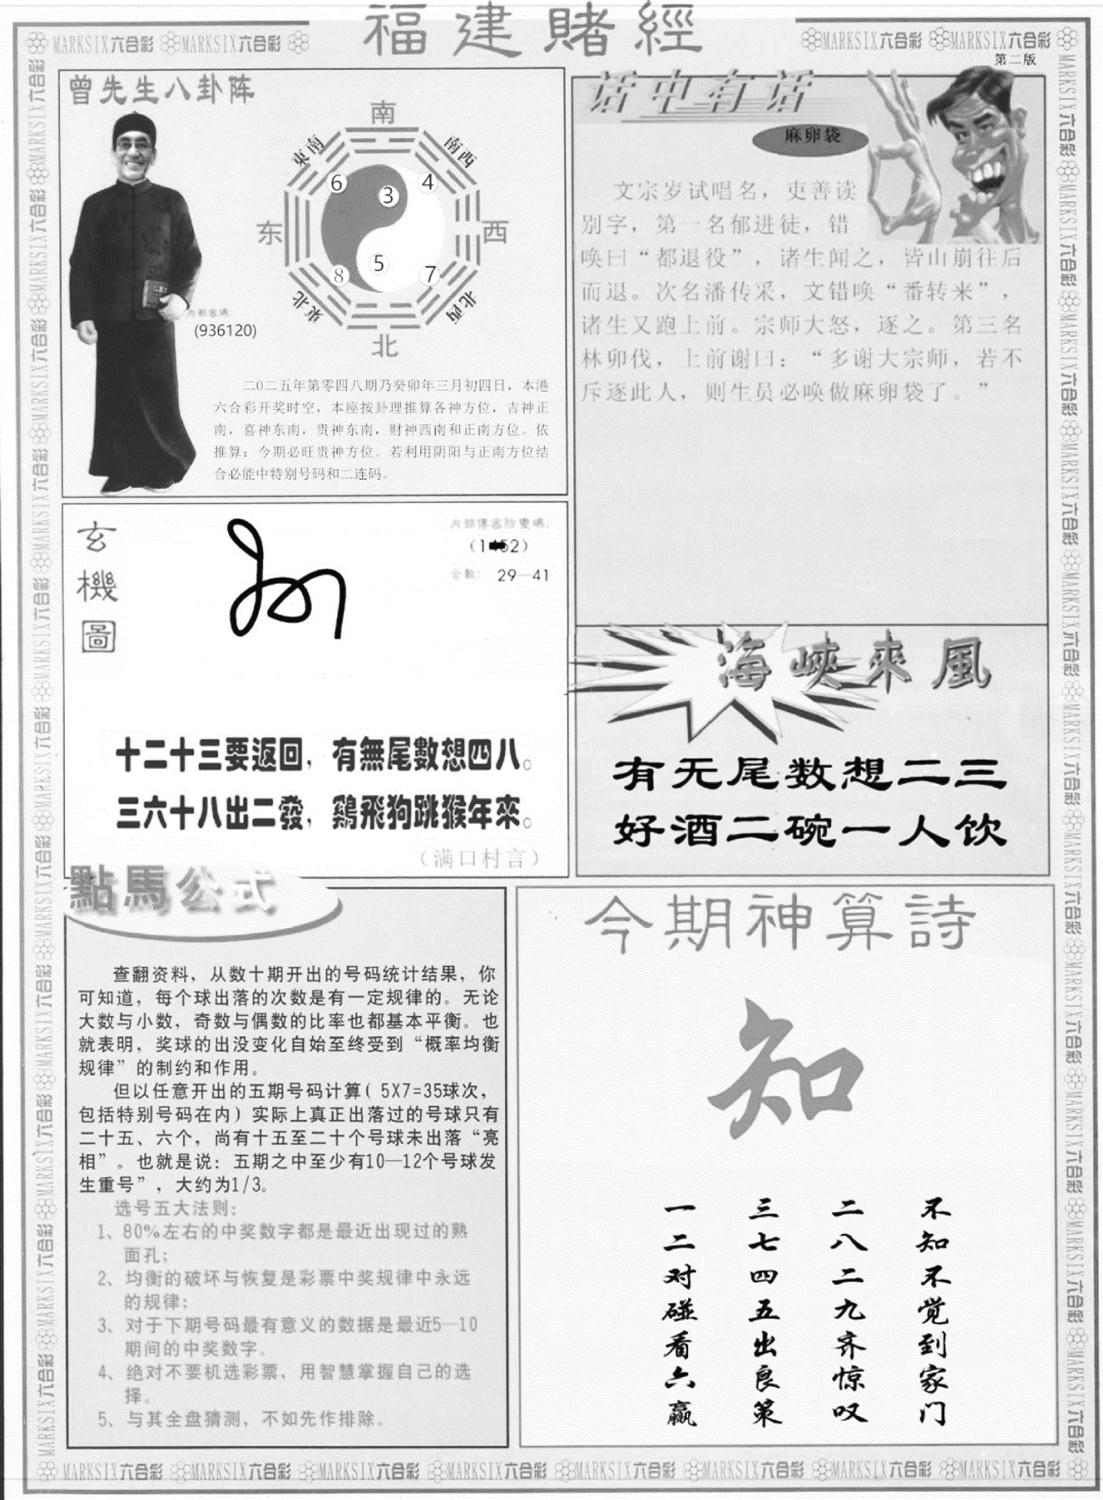 福建賭經
MARKSIX六合彩 MARKSIX六合彩
MARKSIX六合彩 MARKSIX六合彩
第二版
曾先生八卦阵
南
東南
南西
6
3
4
东
西
5
8
7
東北
北西
北
内部密码:
(936120)
二0二五年第零四八期乃癸卯年三月初四日，本港
六合彩开奖时空，本座按卦理推算各神方位，吉神正
南，喜神东南，贵神东南，财神西南和正南方位。依
推算：今期必旺贵神方位。若利用阴阳与正南方位结
合必能中特别号码和二连码。
话中有话
麻卵袋
文宗岁试唱名，吏善读
别字，第一名郁进徒，错
唤曰“都退役”，诸生闻之，皆山崩往后
而退。次名潘传采，文错唤“番转来”，
诸生又跑上前。宗师大怒，逐之。第三名
林卯伐，上前谢曰：“多谢大宗师，若不
斥逐此人，则生员必唤做麻卵袋了。”
玄機圖
(1 52)
合數: 29—41
十二十三要返回，有無尾數想四八。
三六十八出二發，鷄飛狗跳猴年來。
（满口村言）
海峽來風
有无尾数想二三
好酒二碗一人饮
點馬公式
查翻资料，从数十期开出的号码统计结果，你
可知道，每个球出落的次数是有一定规律的。无论
大数与小数，奇数与偶数的比率也都基本平衡。也
就表明，奖球的出没变化自始至终受到“概率均衡
规律”的制约和作用。
但以任意开出的五期号码计算( 5X7=35球次，
包括特别号码在内）实际上真正出落过的号球只有
二十五、六个，尚有十五至二十个号球未出落“亮
相”。也就是说：五期之中至少有10—12个号球发
生重号”，大约为1/3。
选号五大法则：
1、80%左右的中奖数字都是最近出现过的熟
面孔；
2、均衡的破坏与恢复是彩票中奖规律中永远
的规律；
3、对于下期号码最有意义的数据是最近5—10
期间的中奖数字。
4、绝对不要机选彩票，用智慧掌握自己的选
择。
5、与其全盘猜测，不如先作排除。
今期神算詩
知
不知不觉到家门
二八二九齐惊叹
三七四五出良策
一二对碰看六赢
MARKSIX六合彩 MARKSIX六合彩 MARKSIX六合彩 MARKSIX六合彩 MARKSIX六合彩 MARKSIX六合彩 MARKSIX六合彩 MARKSIX六合彩